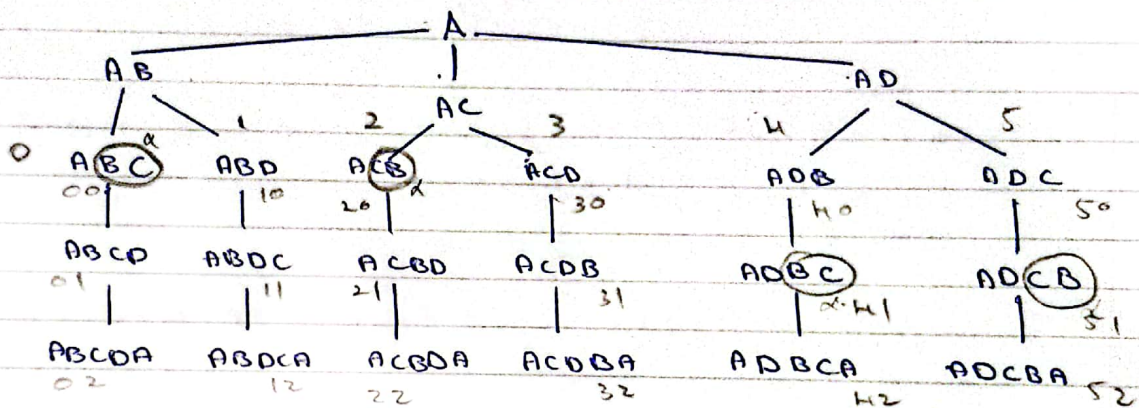 A
AB AC AD
0 1 2 3 4 5
ABC α ABD ACB α ACD ADB ADC
00 10 20 30 40 50
ABCD ABDC ACBD ACDB ADBC ADCB
01 11 21 31 α 41 51
ABCDA ABDCA ACBDA ACDBA ADBCA ADCBA
02 12 22 32 42 52